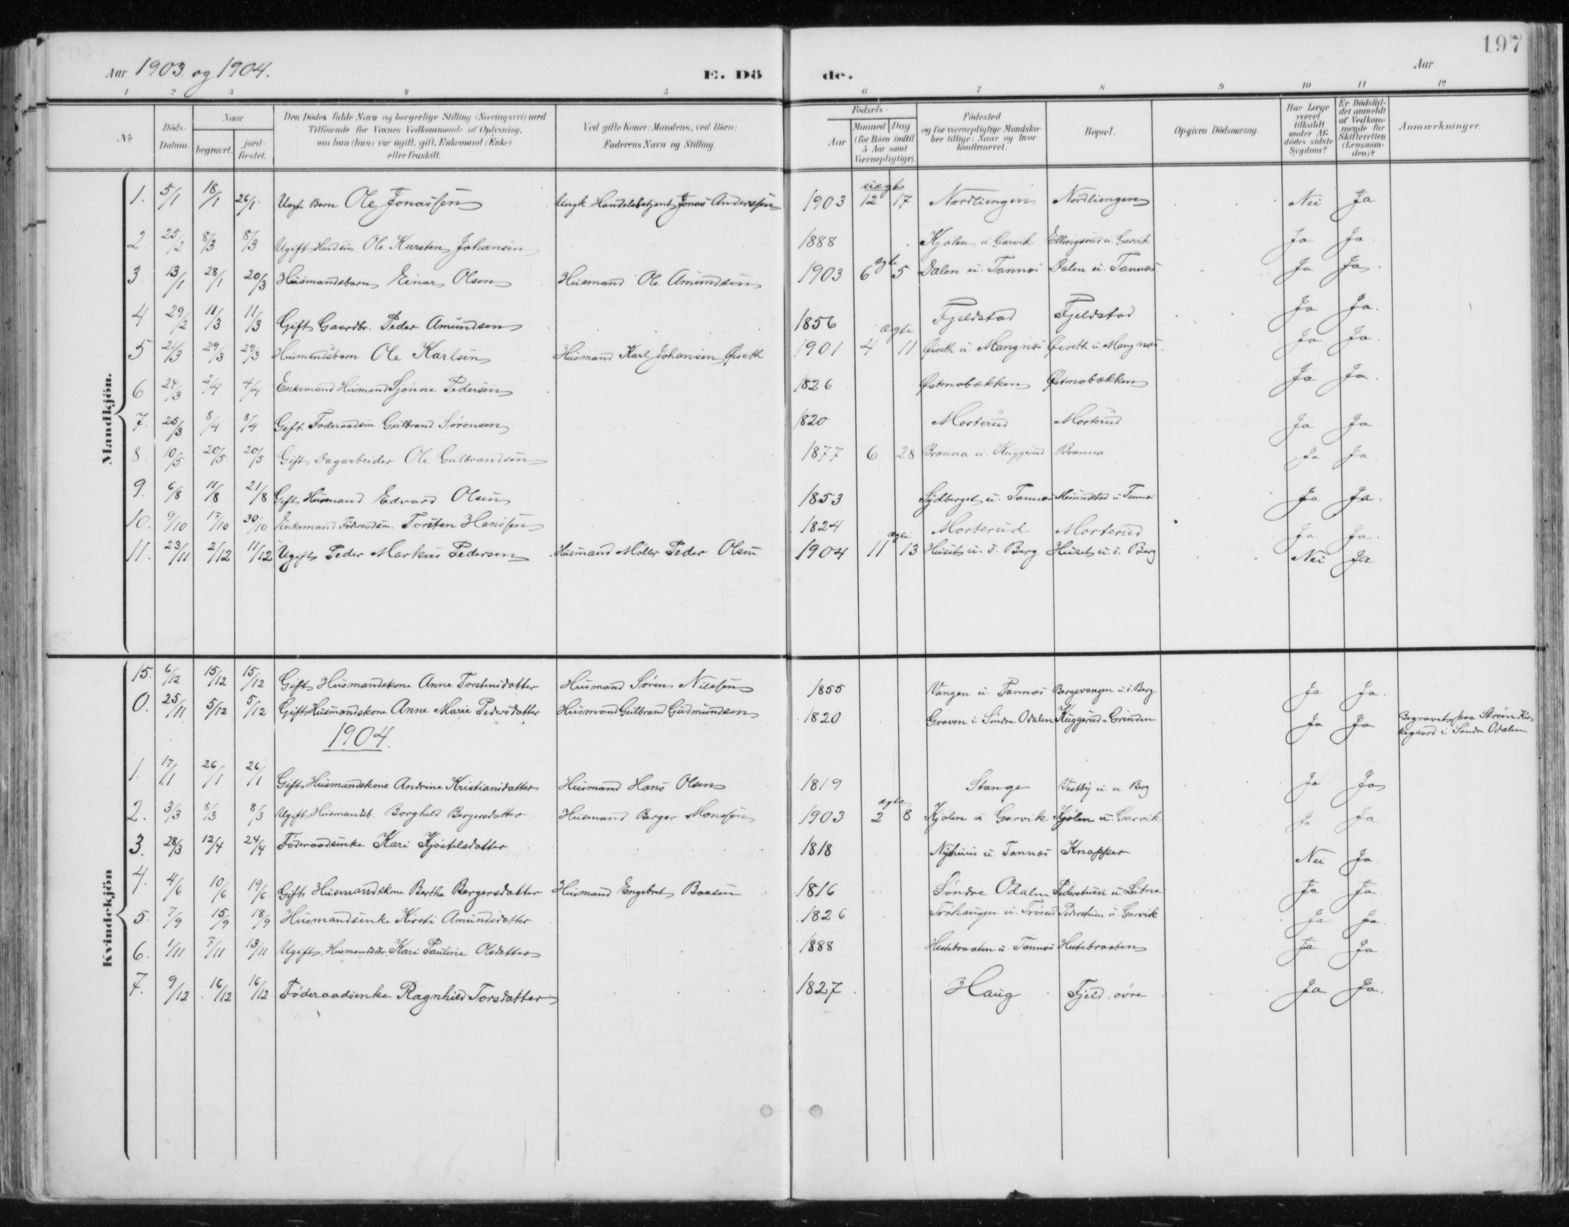 197
Aar 1903 og 1904.
E. Dö de.
Aar
1 2 3 4 5 6 7 8 9 10 11 12
No.
Döds-Datum.
Naar
begravet.
jord-fæstet.
Den Dödes fulde Navn og borgerlige Stilling (Næringsvei) med
Tilföiende for Voxnes Vedkommende af Oplysning,
om han (hun) var ugift, gift, Enkemand (Enke)
eller fraskilt.
Ved gifte Koner: Mandens, ved Börn:
Faderens Navn og Stilling.
Födsels-
Aar
Maaned Dag
(for Börn indtil
5 Aar samt
Værnepligtige).
Födested
og for værnepligtige Mandska-
ber tillige: Naar og hvor
konfirmeret.
Bopæl.
Opgiven Dödsaarsag.
Har Læge
været
tilkaldt
under Af-
dödes sidste
Sygdom?
Er Dödsfal-
det anmeldt
af Vedkom-
mende for
Skifteretten
(Lensman-
den)?
Anmærkninger.
Mandkjön.
1. 5/1 18/1 26/1 Uægt Barn Ole Jonassen Ungk. Handelsbetjent Jonas Anderssen 1903 uægte 12 17 Nordliengen Nordliengen Nei Ja
2. 25/2 8/3 8/3 Ugift Ole Karsten Johansen 1888 Kjølen u Garvik Ellingsrud u Garvik Ja Ja.
3. 13/1 28/1 20/3 Husmandsbarn Einar Olsen Husmand Ole Amundsen 1903 6 ægte 5 Dalen u. Tannæs Dalen u. Tannæs Ja Ja.
4 29/2 11/3 11/3 Gift Gaardbr. Peder Amundsen 1856 Fjeldstad Fjeldstad Ja Ja.
5 21/3 29/3 29/3 Husmandsbarn Ole Karlsen Husmand Karl Johansen Øiseth 1901 ægte 4 11 Øiseth u Mangnæs Øiseth u Mangnæs Ja Ja.
6 24/3 2/4 4/4 Enkemand Husmand Sjønne Pedersen 1826 Østmobækken Østmobækken Ja Ja.
7. 25/3 8/4 8/4 Gift Föderaadsm Gulbrand Sørensen 1820 Morterud Morterud Ja Ja
8. 10/5 20/5 20/5 Gift Dagarbeider Ole Gulbrandsen 1877 6 28 Brænna u. Kuggerud Brænna Ja Ja.
9. 6/8 11/8 21/8 Gift Husmand Edvard Olsen 1853 u. Tannæs u Tannæs Ja Ja.
10. 9/10 17/10 30/10 Enkemand Föderaadsm. Torsten Hanssen 1824 Morterud Morterud Ja Ja.
11. 23/11 2/12 11/12 Ugift Peder Markus Pedersen Husmand Møller Peder Olsen 1904 11 ægte 13 Huset u. ö. Berg Huset u. ö. Berg Nei Ja
Kvindekjön
15. 6/12 15/12 15/12 Gift Husmandskone Anne Torstensdatter Husmand Søren Nilssen 1855 Vangen u. Tannæs Bergevangen u. ö. Berg Ja Ja.
0. 25/11 5/12 5/12 Gift Husmandskone Anne Marie Pedersdatter Husmand Gulbrand Gudmundsen 1820 Graven i Söndre Odalen Kuggerud-Grinden Ja Ja Begravet paa Strøm Kir-
kegaard i Söndre Odalen
1904.
1. 17/1 26/1 26/1 Gift Husmandskone Andrine Kristiansdatter Husmand Hans Olsen 1819 Stange Vestby u. n Berg Ja Ja
2. 3/3 8/3 8/3 Ugift Husmandsb. Borghild Bergersdatter Husmand Berger Monssen 1903 2 ægte 8 Kjølen u Garvik Kjølen u. Garvik Ja Ja
3. 28/3 12/4 24/4 Föderaadsenke Kari Kjøstelsdatter 1818 Nyhuus u Tannæs Knapper Nei Ja
4. 4/6 10/6 19/6 Gift Husmandskone Berthe Bergersdatter Husmand Engebret Baasen 1816 Söndre Odalen Pederstuen u Ja Ja.
5. 7/9 15/9 18/9 Husmandsenke Kirsti Amundsdatter 1826 Fröhaugen u. Pederstuen u. Garvik Ja Ja
6. 1/11 7/11 13/11 Ugift Husmandsd. Kari Pauline Olsdatter 1888 Hestebraaten u. Tannæs Hestebraaten Ja Ja.
7. 9/12 16/12 16/12 Föderaadsenke Ragnhild Torsdatter 1827 Haug Fjeld øvre Ja Ja.